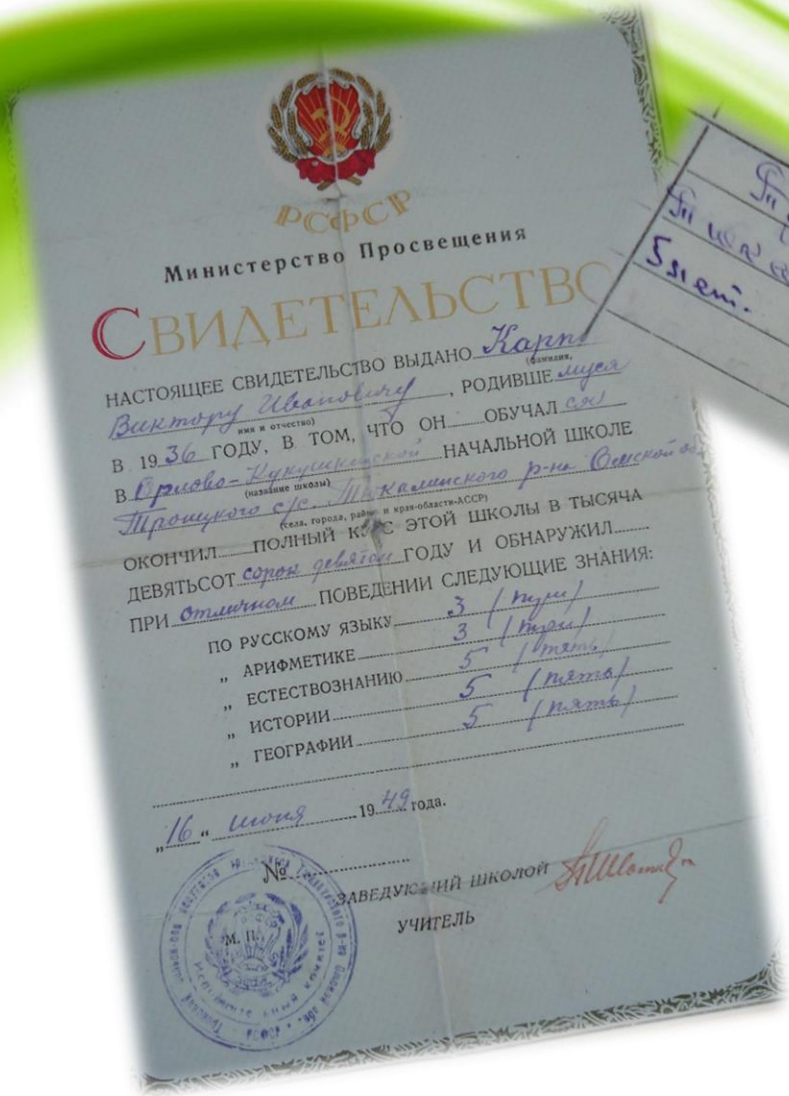 РСФСР
Министерство Просвещения
СВИДЕТЕЛЬСТВО
НАСТОЯЩЕЕ СВИДЕТЕЛЬСТВО ВЫДАНО Карп
(фамилия,
Виктору Ивановичу, РОДИВШЕмуся
имя и отчество)
В 1936 ГОДУ, В ТОМ, ЧТО ОН ОБУЧАЛся
В Орлово-Кукушкинской НАЧАЛЬНОЙ ШКОЛЕ
(название школы)
Троицкого с/с. Тюкалинского р-на Омской об.
(села, города, района и края-области-АССР)
ОКОНЧИЛ ПОЛНЫЙ КУРС ЭТОЙ ШКОЛЫ В ТЫСЯЧА
ДЕВЯТЬСОТ сорок девятом ГОДУ И ОБНАРУЖИЛ
ПРИ отличном ПОВЕДЕНИИ СЛЕДУЮЩИЕ ЗНАНИЯ:
ПО РУССКОМУ ЯЗЫКУ 3 (три)
" АРИФМЕТИКЕ 3 (три)
" ЕСТЕСТВОЗНАНИЮ 5 (пять)
" ИСТОРИИ 5 (пять)
" ГЕОГРАФИИ 5 (пять)
"16" июня 1949 года.
№
ЗАВЕДУЮЩИЙ ШКОЛОЙ
М. П.
УЧИТЕЛЬ
Исполнительный комитет
5 лет.